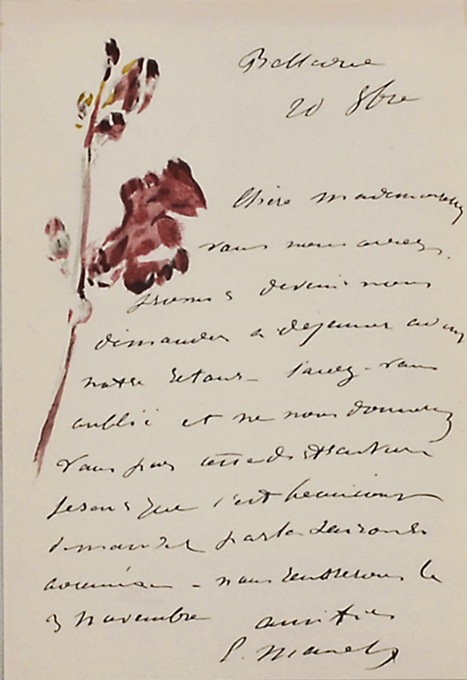 Bellevue
20 8bre
Chère mademoiselle
vous nous avez
promis de venir nous
demander à déjeuner avant
notre retour - l'avez-vous
oublié et ne nous donnerez
vous pas cette distraction
je sais que c'est beaucoup
demander par la saison
avancée - nous rentrerons le
3 novembre
amitiés
E. Manet